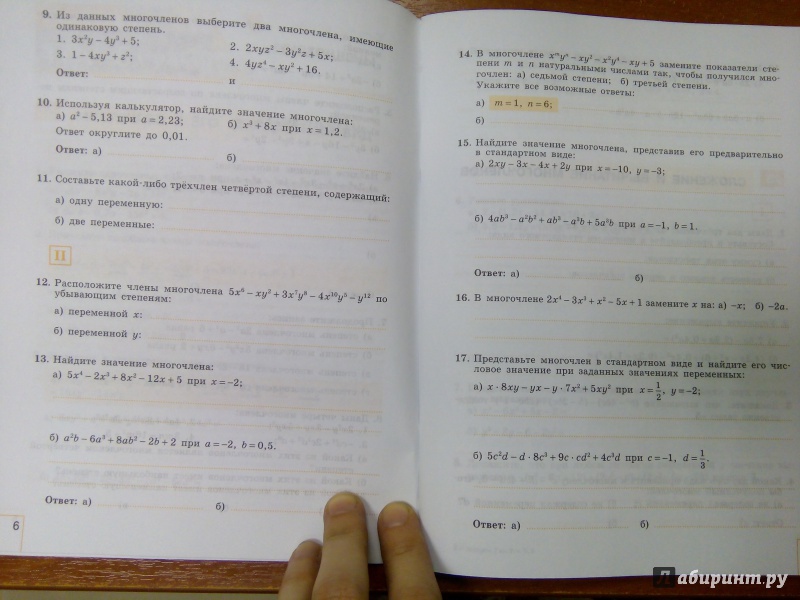 9. Из данных многочленов выберите два многочлена, имеющие
одинаковую степень.
1. 3x²y – 4y³ + 5;
2. 2xyz² – 3y²z + 5x;
3. 1 – 4xy³ + z²;
4. 4yz⁴ – xy² + 16.
Ответ: и
10. Используя калькулятор, найдите значение многочлена:
а) a² – 5,13 при a = 2,23;
б) x³ + 8x при x = 1,2.
Ответ округлите до 0,01.
Ответ: а) б)
11. Составьте какой-либо трёхчлен четвёртой степени, содержащий:
а) одну переменную:
б) две переменные:
II
12. Расположите члены многочлена 5x⁶ – xy² + 3x⁷y⁸ – 4x¹⁰y⁵ – y¹² по
убывающим степеням:
а) переменной x:
б) переменной y:
13. Найдите значение многочлена:
а) 5x⁴ – 2x³ + 8x² – 12x + 5 при x = –2;
б) a²b – 6a³ + 8ab² – 2b + 2 при a = –2, b = 0,5.
Ответ: а) б)
6
14. В многочлене xᵐyⁿ – xy² – x²y⁴ – xy + 5 замените показатели сте-
пени m и n натуральными числами так, чтобы получился мно-
гочлен: а) седьмой степени; б) третьей степени.
Укажите все возможные ответы:
а) m = 1, n = 6;
б)
15. Найдите значение многочлена, представив его предварительно
в стандартном виде:
а) 2xy – 3x – 4x + 2y при x = –10, y = –3;
б) 4ab³ – a²b² + ab³ – a³b + 5a³b при a = –1, b = 1.
Ответ: а) б)
16. В многочлене 2x⁴ – 3x³ + x² – 5x + 1 замените x на: а) –x; б) –2a.
17. Представьте многочлен в стандартном виде и найдите его чис-
ловое значение при заданных значениях переменных:
а) x · 8xy – yx – y · 7x² + 5xy² при x = 1/2, y = –2;
б) 5c²d – d · 8c³ + 9c · cd² + 4c³d при c = –1, d = 1/3.
Ответ: а) б)
Лабиринт.ру